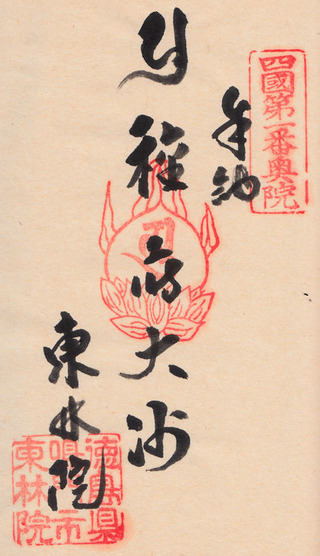 四國第一番奥院
奉納
種蒔大师
東林院
徳島県
鳴門市
東林院